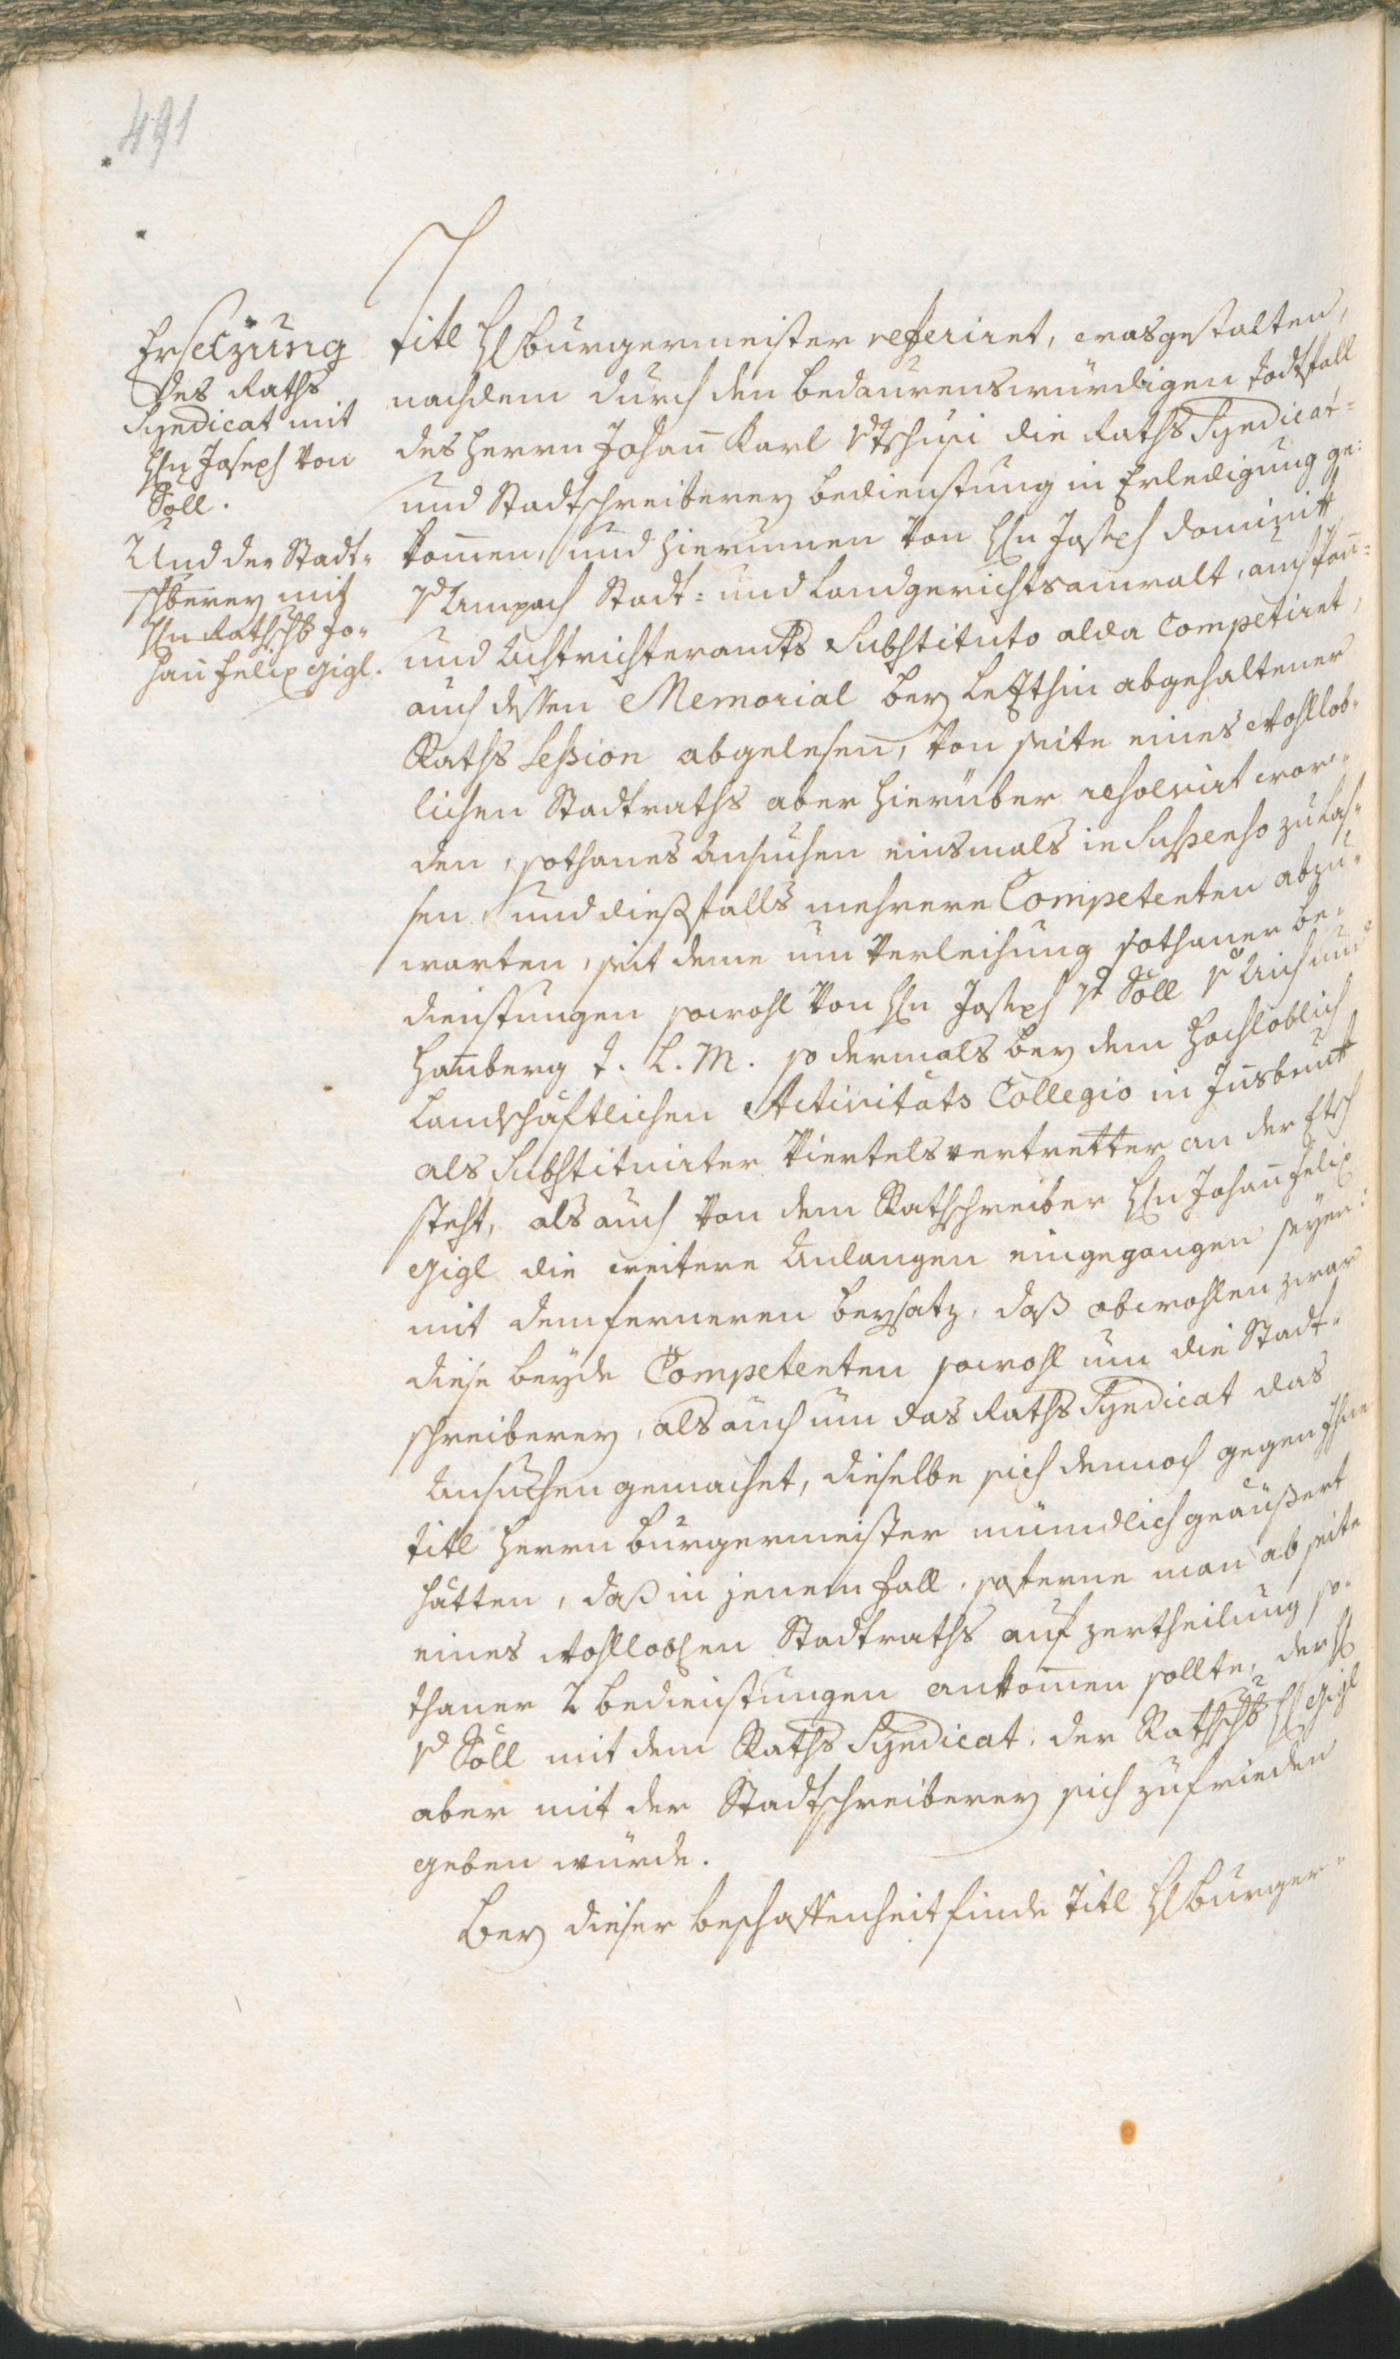 491
Ersetzung
des Raths
Syndicat mit
Hln Joseph von
Söll.
Und der Stadt-
schberey mit
Hln Rathschb Jo-
hañ Felix Gigl.
Titl Hl Burgermeister referiret, wasgestalten,
nachdem durch den bedaurenswürdigen Todtfall
des Herrn Johañ Karl v Tschusi die Raths Syndicat-
und Stadtschreiberey bedienstung in Erledigung ge-
kom̄en, und hierum̄en von Hln Joseph Dominikk
v Ampach Stadt- und Landgerichtsanwalt, auch
und Achtrichteramts Substituto alda competiret,
auch dessen Memorial bey letzthin abgehaltener
Raths Session abgelesen, von seite eines Wohllob-
lichen Stadtraths aber hierüber resolvirt wor-
den, sothanes Ansuchen einsmals in Suspenso zu las-
sen, und dießfalls mehrere Competenten abzu-
warten, seit deme um Verleihung sothaner be-
dienstungen sowohl von Hln Joseph v Söll v Aich und
Hanberg T. L. M. so dermals bey dem Hochloblich
Landschäftlichen Activitäts Collegio in Insbrukk
als Substituirter Viertelsvertretter an der Etsch
steht, als auch von dem Rathschreiber Hln Johañ Felix
Gigl die weitere Anlangen eingegangen seyen:
mit dem ferneren beysatz, daß obwohlen zwar
diese beyde Competenten sowohl um die Stadt-
schreiberey, als auch um das Raths Syndicat das
Ansuchen gemachet, dieselbe sich dennoch gegen Ihne
titl Herrn Burgermeister mündlich geäußert
hätten, daß in jenem Fall, soferne man ab seite
eines Wohlloblen Stadtraths auf zertheilung so-
thaner 2 bedienstungen ankom̄en sollte, der Hl
v Söll mit dem Raths Syndicat, der Rathschb Hl Gigl
aber mit der Stadtschreiberey sich zufrieden
geben würde.
Bey dieser beschaffenheit finde Titl Hl Burger-